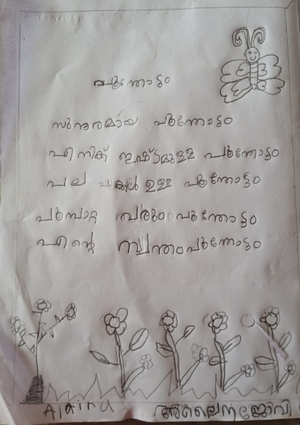 പൂന്തോട്ടം
സുന്ദരമായ പൂന്തോട്ടം
എനിക് ഇഷ്ടമുള്ള പൂന്തോട്ടം
പല പൂക്കൾ ഉള്ള പൂന്തോട്ടം
പൂമ്പാറ്റ വരും പൂന്തോട്ടം
എന്റെ സ്വന്തം പൂന്തോട്ടം
Alaina അലൈന ജോവി